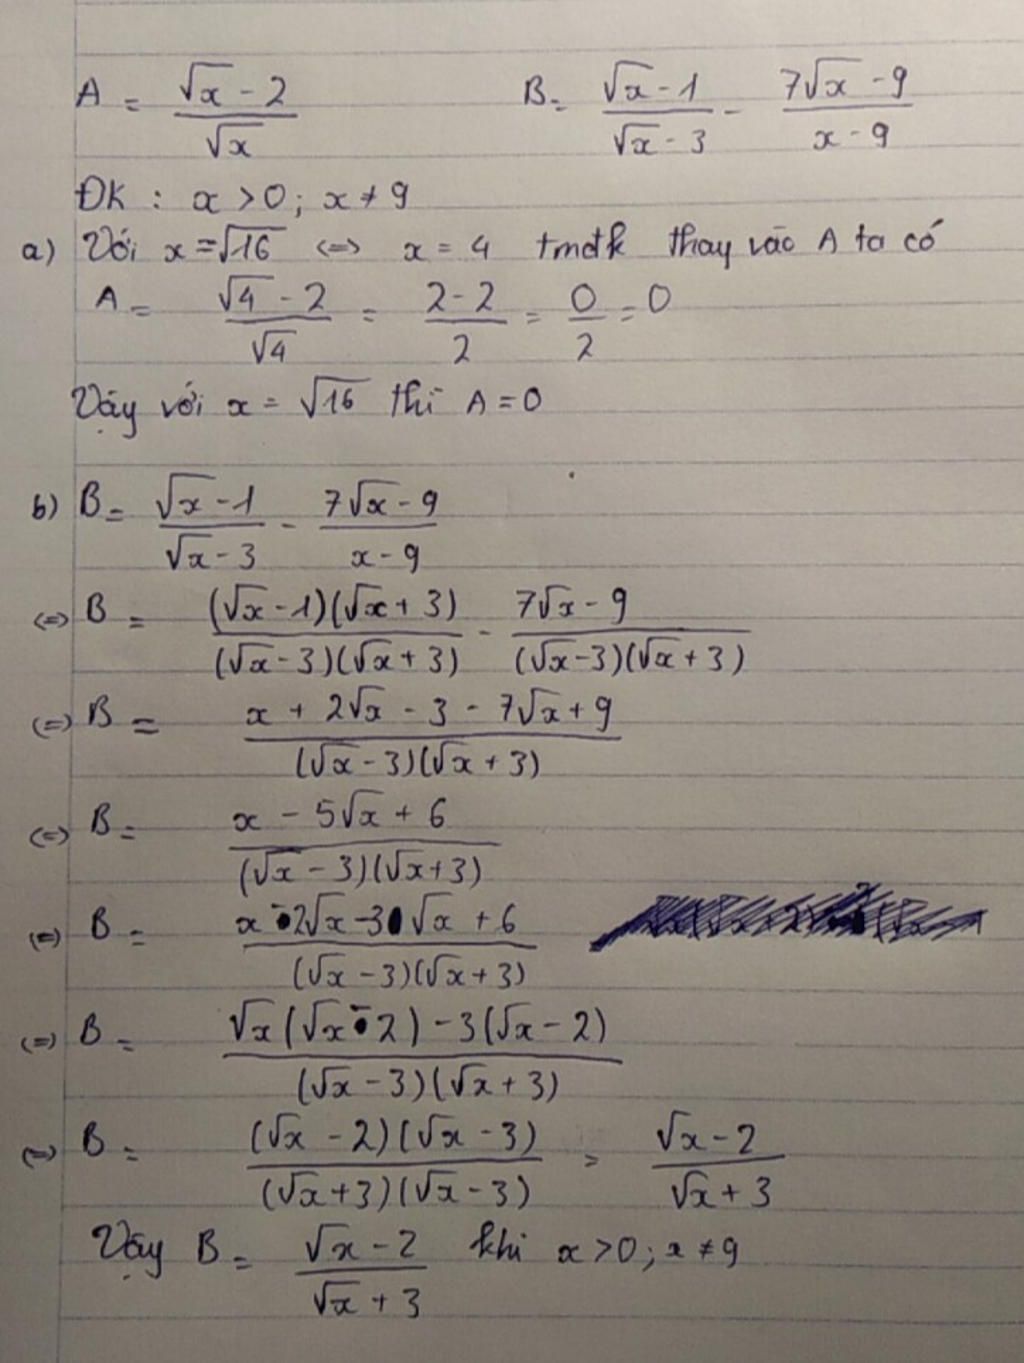 A = (√x - 2)/√x   B = (√x - 1)/(√x - 3) - (7√x - 9)/(x - 9)
ĐK : x > 0 ; x ≠ 9
a) Với x = √16 <=> x = 4 tmđk thay vào A ta có
A = (√4 - 2)/√4 = (2 - 2)/2 = 0/2 = 0
Vậy với x = √16 thì A = 0
b) B = (√x - 1)/(√x - 3) - (7√x - 9)/(x - 9)
<=> B = (√x - 1)(√x + 3)/(√x - 3)(√x + 3) - (7√x - 9)/(√x - 3)(√x + 3)
<=> B = (x + 2√x - 3 - 7√x + 9)/(√x - 3)(√x + 3)
<=> B = (x - 5√x + 6)/(√x - 3)(√x + 3)
<=> B = (x - 2√x - 3√x + 6)/(√x - 3)(√x + 3)
<=> B = (√x(√x - 2) - 3(√x - 2))/(√x - 3)(√x + 3)
<=> B = (√x - 2)(√x - 3)/(√x + 3)(√x - 3) = (√x - 2)/(√x + 3)
Vậy B = (√x - 2)/(√x + 3) khi x > 0 ; x ≠ 9